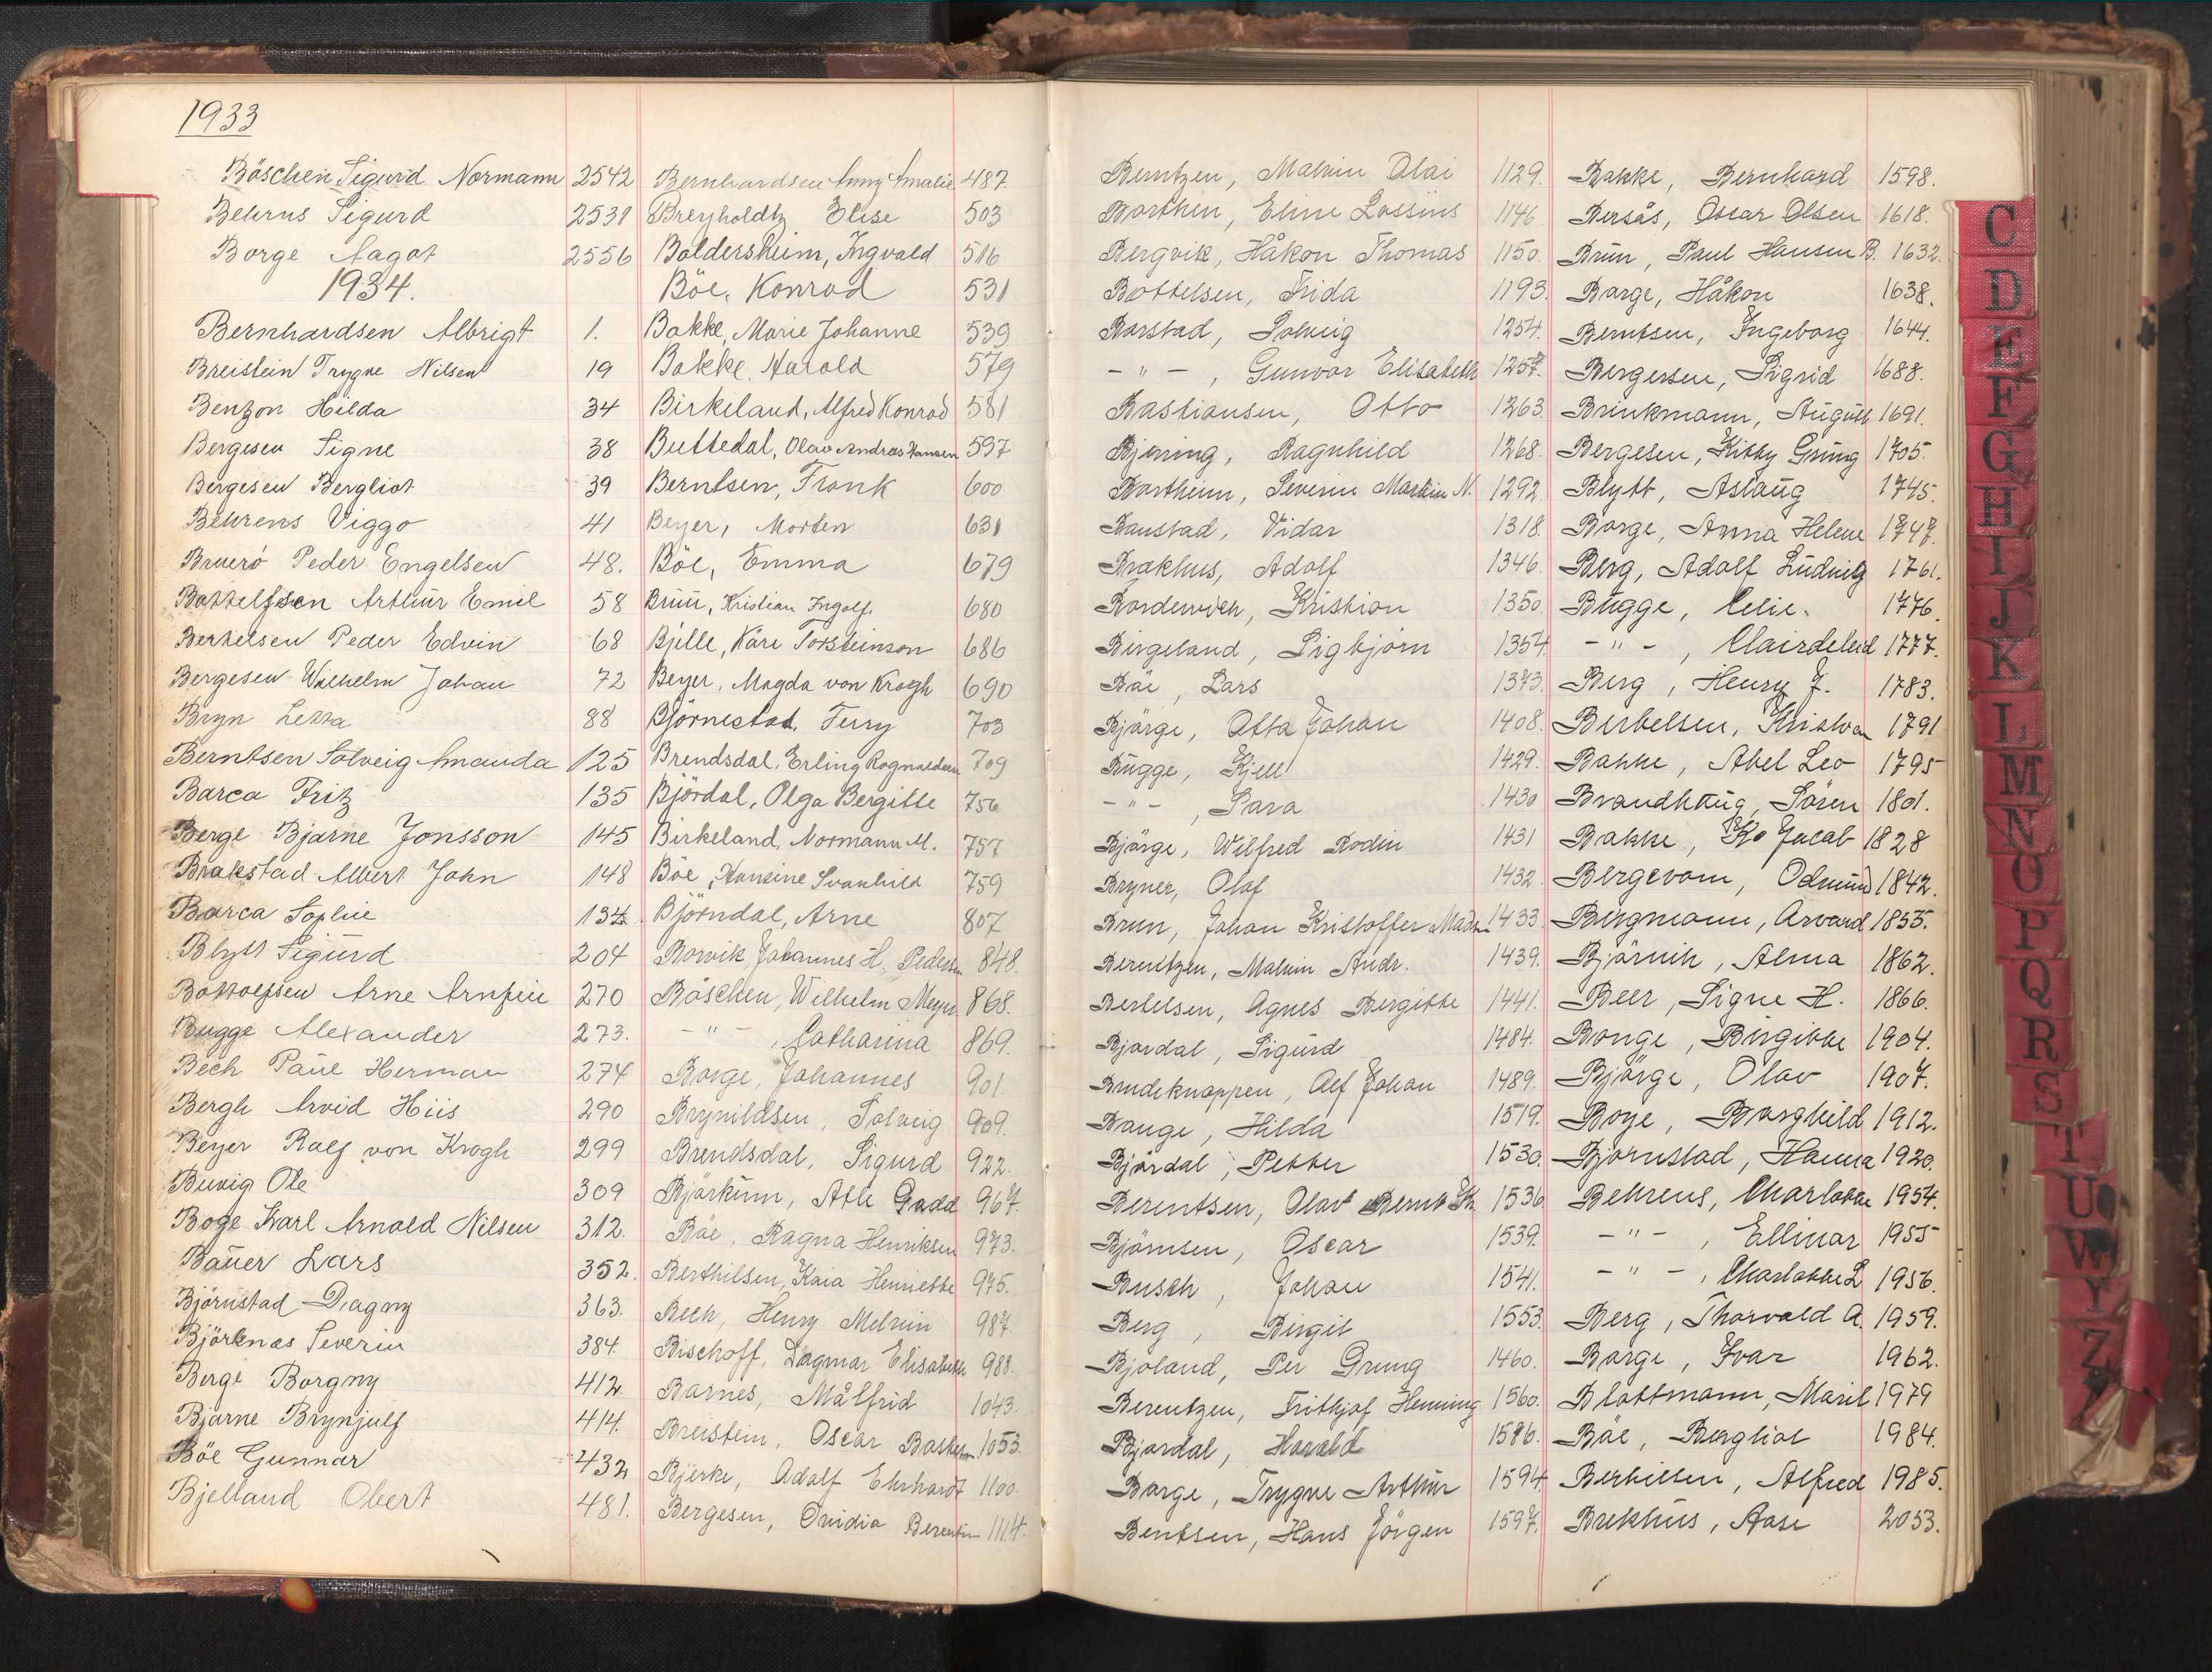 1933
Böschen Sigurd Normann 2542
Behrns Sigurd 2531
Borge Aagot 2556
1934.
Bernhardsen Albrigt 1.
Breistein Trygve Nilsen 19
Benzon Hilda 34
Bergesen Signe 38
Bergesen Bergliot 39
Behrens Viggo 41
Bruerö Peder Engelsen 48.
Bottelfsen Arthur Emil 58
Bertelsen Peder Edvin 68
Bergesen Wilhelm Johan 72
Bryn Letta 88
Berntsen Solveig Amanda 125
Barca Fritz 135
Berge Bjarne Jonsson 145
Brakstad Albert John 148
Barca Sophie 134
Blytt Sigurd 204
Bottolfsen Arne Arnfin 270
Bugge Alexander 273.
Bech Paul Herman 274
Bergh Arvid Hiis 290
Beyer Ralf von Krogh 299
Buvig Ole 309
Boge Karl Arnold Nilsen 312.
Bauer Lars 352.
Björnstad Dagny 363.
Björknes Severin 384.
Berge Borgny 412.
Bjarne Brynjulf 414.
Böe Gunnar 432
Bjelland Obert 481.
Bernhardsen Anny Amalie 487
Breyholdtz Elise 503
Boldersheim, Ingvald 516
Böe, Konrad 531
Bakke, Marie Johanne 539
Bakke, Harald 579
Birkeland, Alfred Konrad 581
Buttedal, Olav Andreas Hansen 597
Berntsen, Frank 600
Beyer, Morten 631
Böe, Emma 679
Brun, Kristian Ingolf. 680
Bjelle, Kåre Torsteinson 686
Beyer, Magda von Krogh 690
Björnestad, Terry 703
Brendsdal, Erling Rognaldsen 709
Björdal, Olga Bergitte 756
Birkeland, Normann M. 757
Böe, Hansine Svanhild 759
Björndal, Arne 807
Borvik, Johannes H. Pedersen 848.
Böschen, Wilhelm Meyer 868.
- " - , Catharina 869.
Borge, Johannes 901
Brynildsen, Solveig 909.
Brendsdal, Sigurd 922.
Björkum, Atle Gadd 967.
Böe, Ragna Henriksen 973.
Berthilsen, Kaia Henriette 975.
Bech, Henry Melvin 987.
Bischoff, Dagmar Elisabeth 988.
Barnes, Målfrid 1043.
Breistein, Oscar 1053.
Bjerke, Adolf Ehrhardt 1100.
Bergesen, Ovidia Berentin 1114.
Berntzen, Malvin Olai 1129.
Borthen, Eline Lossius 1146
Bergvik, Håkon Thomas 1150.
Bottelsen, Frida 1193.
Borstad, Solveig 1254.
- " - , Gunvor Elisabeth 1257.
Bastiansen, Otto 1263.
Bjerring, Ragnhild 1268.
Bortheim, Severin Martin N. 1292.
Baustad, Vidar 1318.
Brakhus, Adolf 1346.
Bordewich, Kristian 1350.
Birgeland, Sigbjörn 1354.
Böe, Lars 1373.
Bjørge, Otto Johan 1408.
Bugge, Kjell 1429.
- " - , Sara 1430
Bjørge, Wilfred Rodin 1431
Bryner, Olaf 1432.
Brun, Johan Kristoffer Mads 1433.
Berentzen, Malvin Andr. 1439.
Bertelsen, Agnes Bergitte 1441.
Bjordal, Sigurd 1484.
Brudeknappen, Alf Johan 1489.
Bauge, Hilda 1519.
Bjørdal, Petter 1530.
Berentsen, Olav Bernt 1536.
Björnsen, Oscar 1539.
Busch, Johan 1541.
Berg, Birgit 1553.
Bjoland, Per Grung 1460.
Berentzen, Frithjof Henning 1560.
Bjordal, Harald 1586.
Borge, Trygve Arthur 1594.
Bentsen, Hans Jörgen 1597.
Bakke, Bernhard 1598.
Bersås, Oscar Olsen 1618.
Brun, Paul Hansen B. 1632.
Borge, Håkon 1638.
Berntsen, Ingeborg 1644.
Bergersen, Sigrid 1688.
Brinkmann, August 1691.
Bergesen, Kitty Grung 1705.
Blytt, Aslaug 1745.
Borge, Anna Helene 1747.
Berg, Adolf Ludvig 1761.
Bugge, Celie. 1776.
- " - , 1777.
Berg, Henry J. 1783.
Bertelsen, 1791
Bakke, Abel Leo 1795
Brandhaug, Sören 1801.
Bakke, Jacob 1828
Bergevom, Odmund 1842.
Birgmann, Arvard 1855.
Bjørnik, Alma 1862.
Beer, Signe H. 1866.
Bonge, Birgitte 1904.
Bjørge, Olav 1907.
Boye, Borghild 1912.
Bjørnstad, Hanna 1920.
Behrens, Charlotte 1954.
- " - , Ellinor 1955
- " - , Charlotte L 1956.
Berg, Thorvald A. 1959.
Borge, Ivar 1962.
Blottmann, Maril 1979
Böe, Bergliot 1984.
Berthilsen, Alfred 1985.
Brekhus, Aase 2053.
C
D
E
F
G
H
I
J
K
L
M
N
O
P
Q
R
S
T
U
W
Y
Z